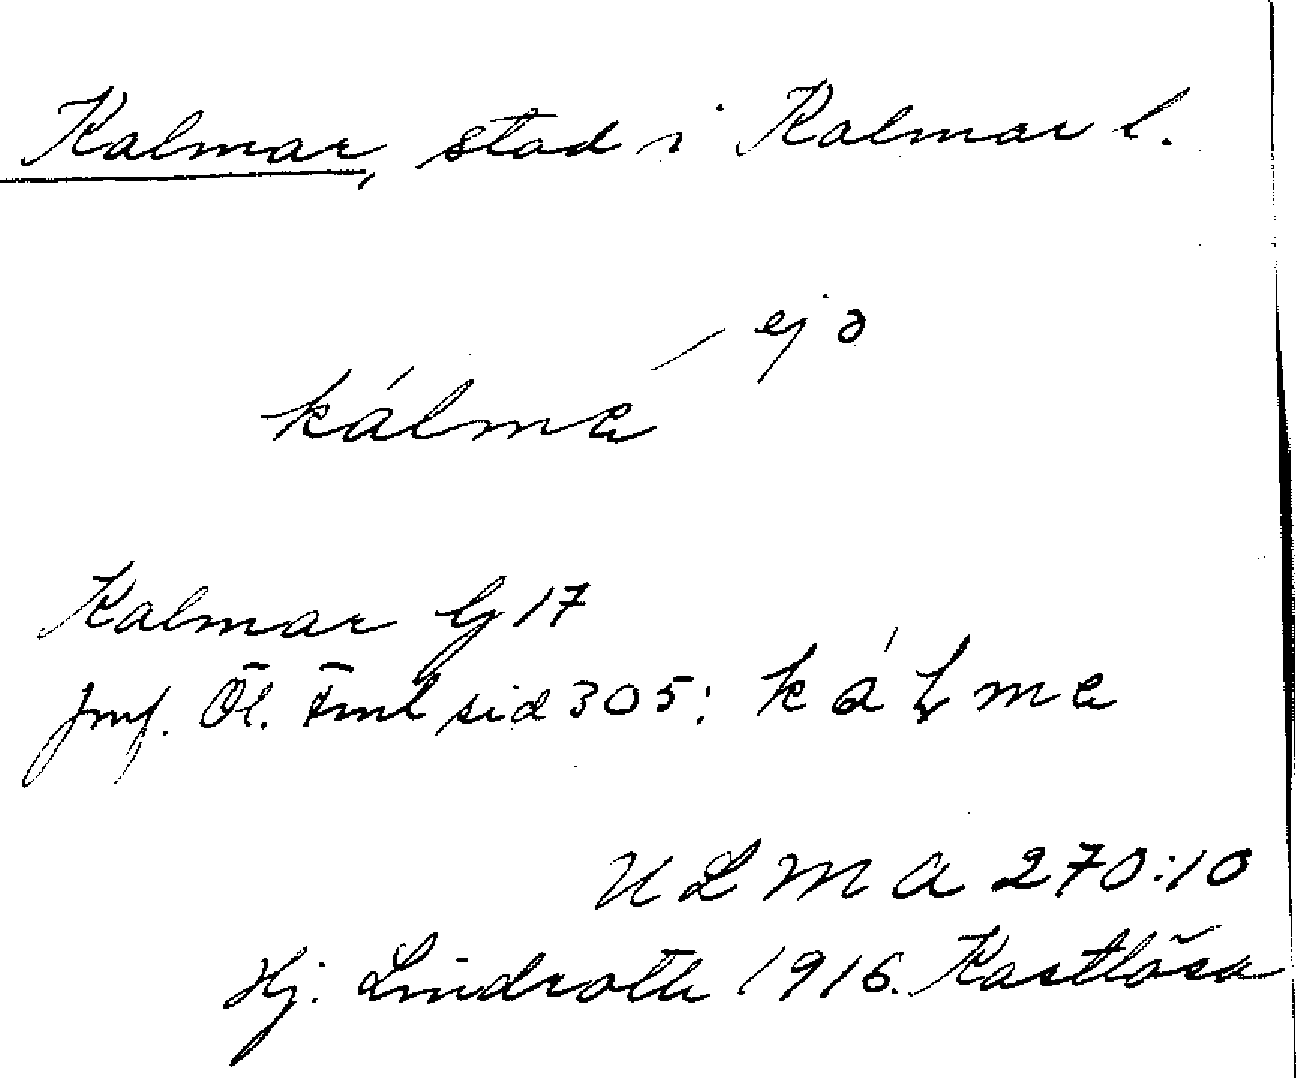 Kalmar, stad i Kalmar l.
ej ə
kálma
Kalmar G 17
Jmf. Öl. Fml sid 305: káļma
ULMA 270:10
Hj. Lindroth 1916. Kastlösa